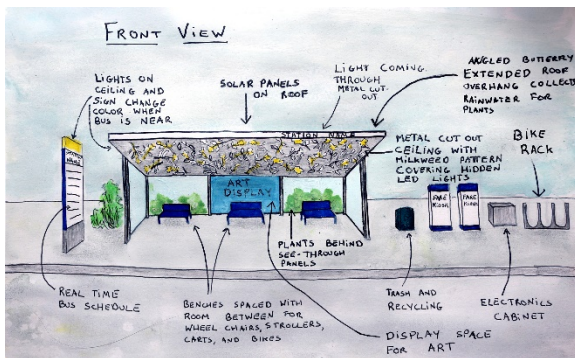 FRONT VIEW
LIGHTS ON
CEILING AND
SIGN CHANGE
COLOR WHEN
BUS IS NEAR
SOLAR PANELS
ON ROOF
LIGHT COMING
THROUGH
METAL CUT-
OUT
ANGLED BUTTERRY
EXTENDED ROOF
OVERHANG COLLECTS
RAINWATER FOR
PLANTS
STATION NAME
METAL CUT OUT
CEILING WITH
MILKWEED PATTERN
COVERING HIDDEN
LED LIGHTS
BIKE
RACK
STATION
NAME
ART
DISPLAY
FARE
KIOSK
FARE
KIOSK
PLANTS BEHIND
SEE-THROUGH
PANELS
REAL TIME
BUS SCHEDULE
BENCHES SPACED WITH
ROOM BETWEEN FOR
WHEEL CHAIRS, STROLLERS,
CARTS, AND BIKES
TRASH AND
RECYCLING
DISPLAY SPACE
FOR ART
ELECTRONICS
CABINET